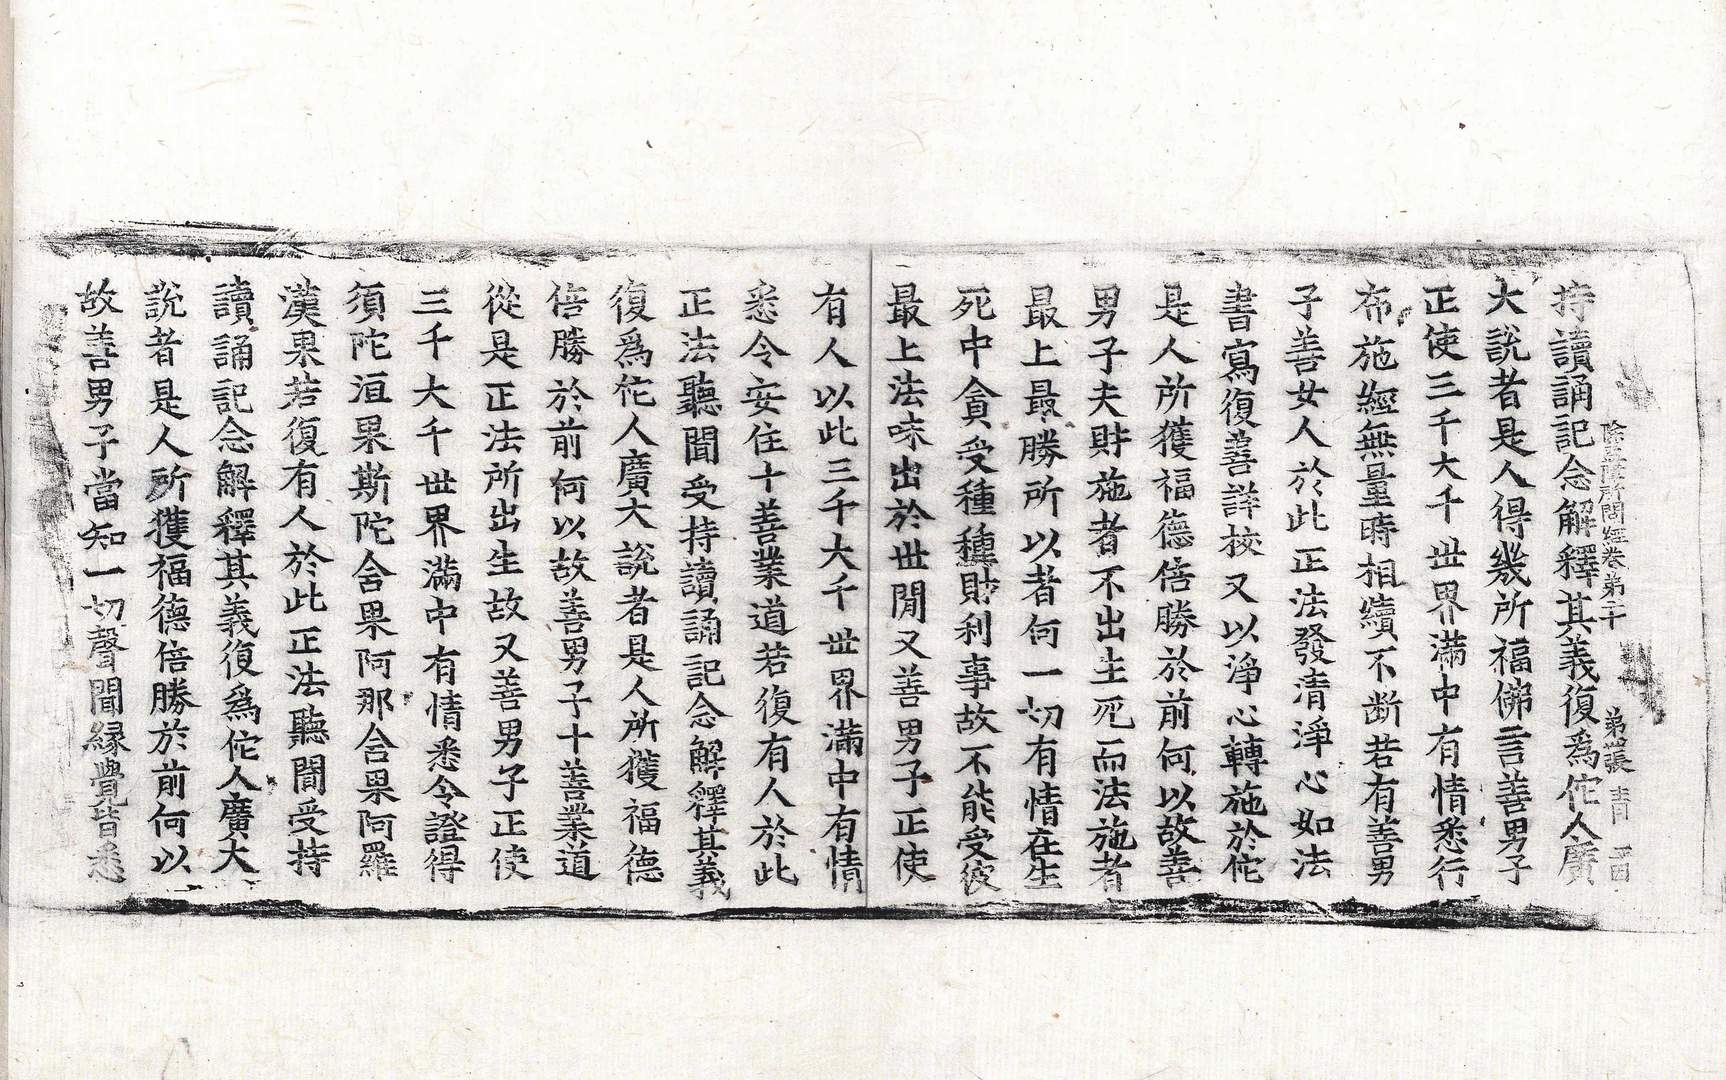 持讀誦記念解釋其義復爲佗人廣
大說者是人得幾所福佛言善男子
正使三千大千世界滿中有情悉行
布施經無量時相續不斷若有善男
子善女人於此正法發清淨心如法
書寫復善詳挍又以淨心轉施於佗
是人所獲福德倍勝於前何以故善
男子夫財施者不出生死而法施者
最上最勝所以者何一切有情在生
死中貪受種種財利事故不能受彼
最上法味出於世間又善男子正使
有人以此三千大千世界滿中有情
悉令安住十善業道若復有人於此
正法聽聞受持讀誦記念解釋其義
復爲佗人廣大說者是人所獲福德
倍勝於前何以故善男子十善業道
從是正法所出生故又善男子正使
三千大千世界滿中有情悉令證得
須陀洹果斯陀含果阿那含果阿羅
漢果若復有人於此正法聽聞受持
讀誦記念解釋其義復爲佗人廣大
說者是人所獲福德倍勝於前何以
故善男子當知一切聲聞緣覺皆悉